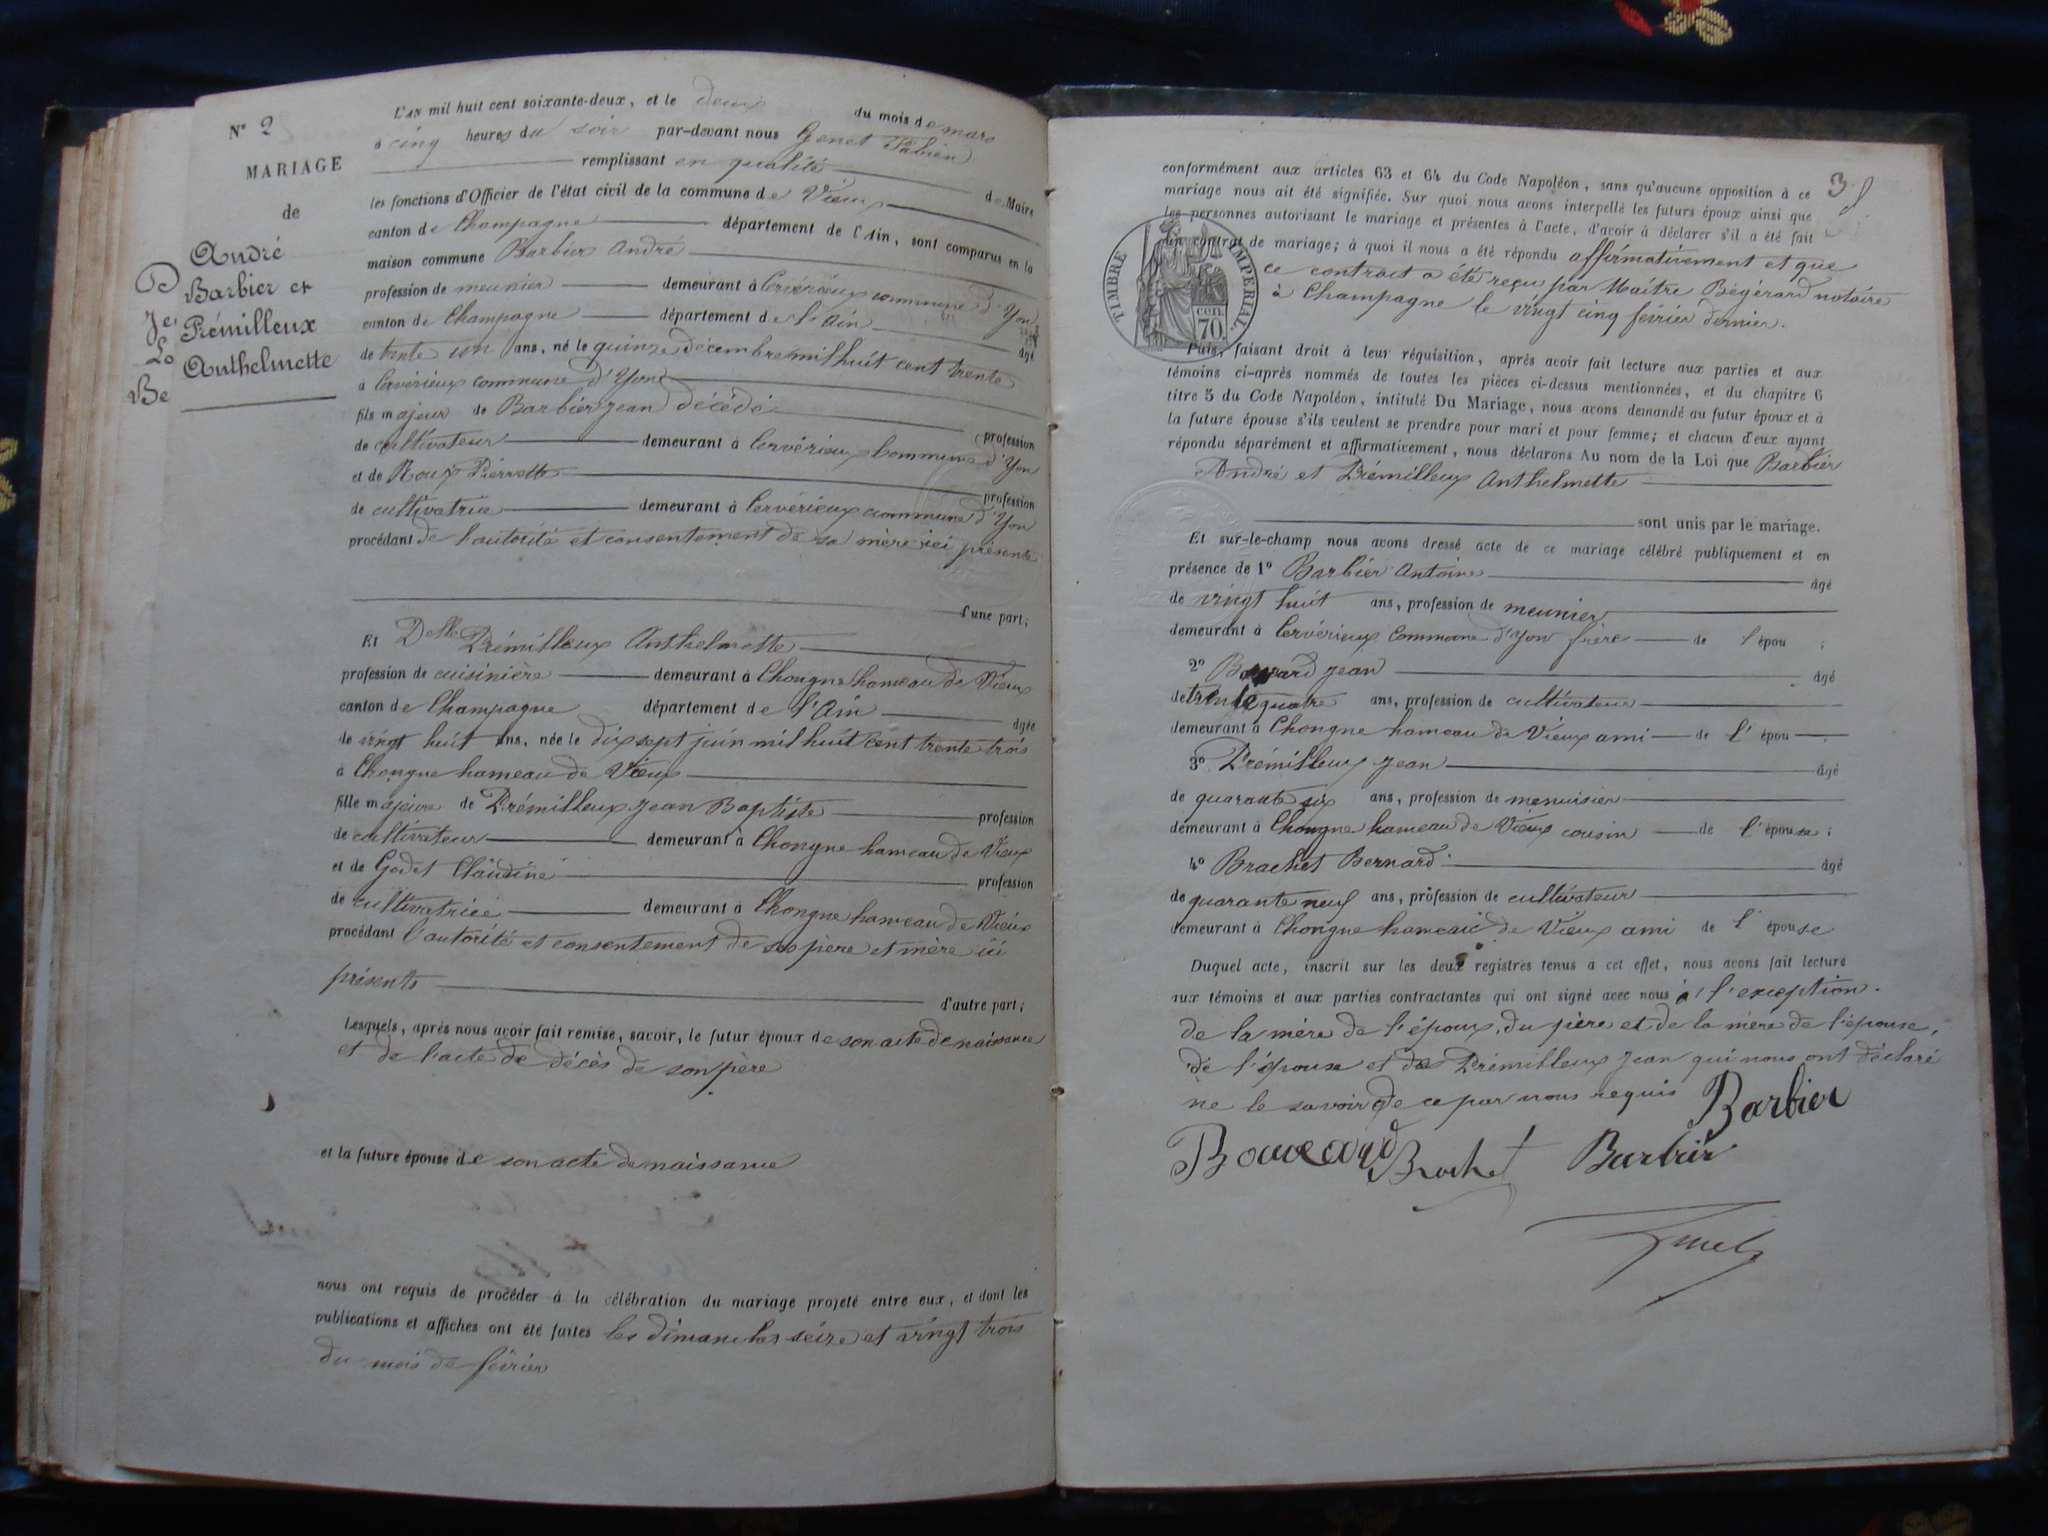 N° 2
MARIAGE
de
André
Barbier et
Prémilleux
Anthelmette
D
Je
Lo
Be
L'AN mil huit cent soixante-deux, et le deux du mois de mars
à cinq heures du soir par-devant nous Genet Fabien
remplissant en qualité de Maire
les fonctions d'Officier de l'état civil de la commune de Vieux
canton de Champagne département de l'Ain, sont comparus en la
maison commune Barbier André
profession de meunier demeurant à Cervérieux commune d'Yon
canton de Champagne département de l'Ain âgé
de trente un ans, né le quinze décembre mil huit cent trente
à Cervérieux commune d'Yon
fils majeur de Barbier jean décédé profession
de cultivateur demeurant à Cervérieux commune d'Yon
et de Roux Pierrette profession
de cultivatrice demeurant à Cervérieux commune d'Yon
procédant de l'autorité et consentement de sa mère ici présente
d'une part;
Et Delle Prémilleux Anthelmette
profession de cuisinière demeurant à Chongne hameau de Vieux
canton de Champagne département de l'Ain âgée
de vingt huit ans, née le dix sept juin mil huit cent trente trois
à Chongne hameau de Vieux
fille majeure de Prémilleux Jean Baptiste profession
de cultivateur demeurant à Chongne hameau de Vieux
et de Godet Claudine profession
de cultivatrice demeurant à Chongne hameau de Vieux
procédant l'autorité et consentement de ses père et mère ici
présents d'autre part;
Lesquels, après nous avoir fait remise, savoir, le futur époux de son acte de naissance
et de l'acte de décès de son père
et la future épouse de son acte de naissance
nous ont requis de procéder à la célébration du mariage projeté entre eux, et dont les
publications et affiches ont été faites les dimanches seize et vingt trois
du mois de février
3
conformément aux articles 63 et 64 du Code Napoléon, sans qu'aucune opposition à ce
mariage nous ait été signifiée. Sur quoi nous avons interpellé les futurs époux ainsi que
les personnes autorisant le mariage et présentes à l'acte, d'avoir à déclarer s'il a été fait
un contrat de mariage; à quoi il nous a été répondu affirmativement et que
ce contrat a été reçu par Maître Bégérard notaire
à Champagne le vingt cinq février dernier.
TIMBRE IMPÉRIAL.
70 cen.
Puis, faisant droit à leur réquisition, après avoir fait lecture aux parties et aux
témoins ci-après nommés de toutes les pièces ci-dessus mentionnées, et du chapitre 6
titre 5 du Code Napoléon, intitulé Du Mariage, nous avons demandé au futur époux et à
la future épouse s'ils veulent se prendre pour mari et pour femme; et chacun d'eux ayant
répondu séparément et affirmativement, nous déclarons Au nom de la Loi que Barbier
André et Prémilleux Anthelmette
sont unis par le mariage.
Et sur-le-champ nous avons dressé acte de ce mariage célébré publiquement et en
présence de 1° Barbier Antoine âgé
de vingt huit ans, profession de meunier
demeurant à Cervérieux commune d'Yon frère de l'épou ;
2° jean âgé
de trente quatre ans, profession de cultivateur
demeurant à Chongne hameau de Vieux ami de l'épou
3° Prémilleux Jean âgé
de quarante six ans, profession de menuisier
demeurant à Chongne hameau de Vieux cousin de l'épouse;
4° Brachet Bernard âgé
de quarante neuf ans, profession de cultivateur
demeurant à Chongne hameau de Vieux ami de l'épouse
Duquel acte, inscrit sur les deux registres tenus a cet effet, nous avons fait lecture
aux témoins et aux parties contractantes qui ont signé avec nous à l'exception
de la mère de l'époux, du père et de la mère de l'épouse,
de l'épouse et de Prémilleux Jean qui nous ont déclaré
ne le savoir de ce par nous requis Barbier
Brachet Barbier